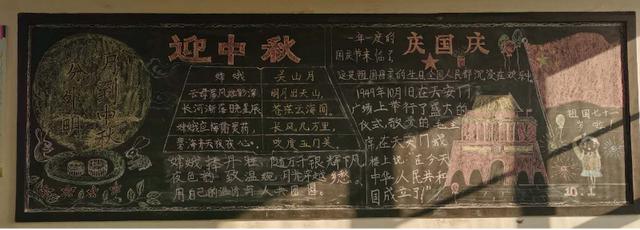 月到中秋
分外明
迎中秋
嫦娥
云母屏风烛影深
长河渐落晓星辰
嫦娥应悔偷灵药
碧海青天夜夜心
关山月
明月出天山
苍茫云海间
长风几万里
吹度玉门关
嫦娥捧月
夜色
用自己的
人共团圆
庆国庆
一年一度的
国庆节来临了
这是祖国母亲的生日全国人民都沉浸在欢乐中
1949年10月1日在天安门
广场上举行了盛大的
仪式,敬爱的毛主
席在天安门城
楼上说:在今天
中华人民共和
国成立了!"
祖国七十
岁
10.1